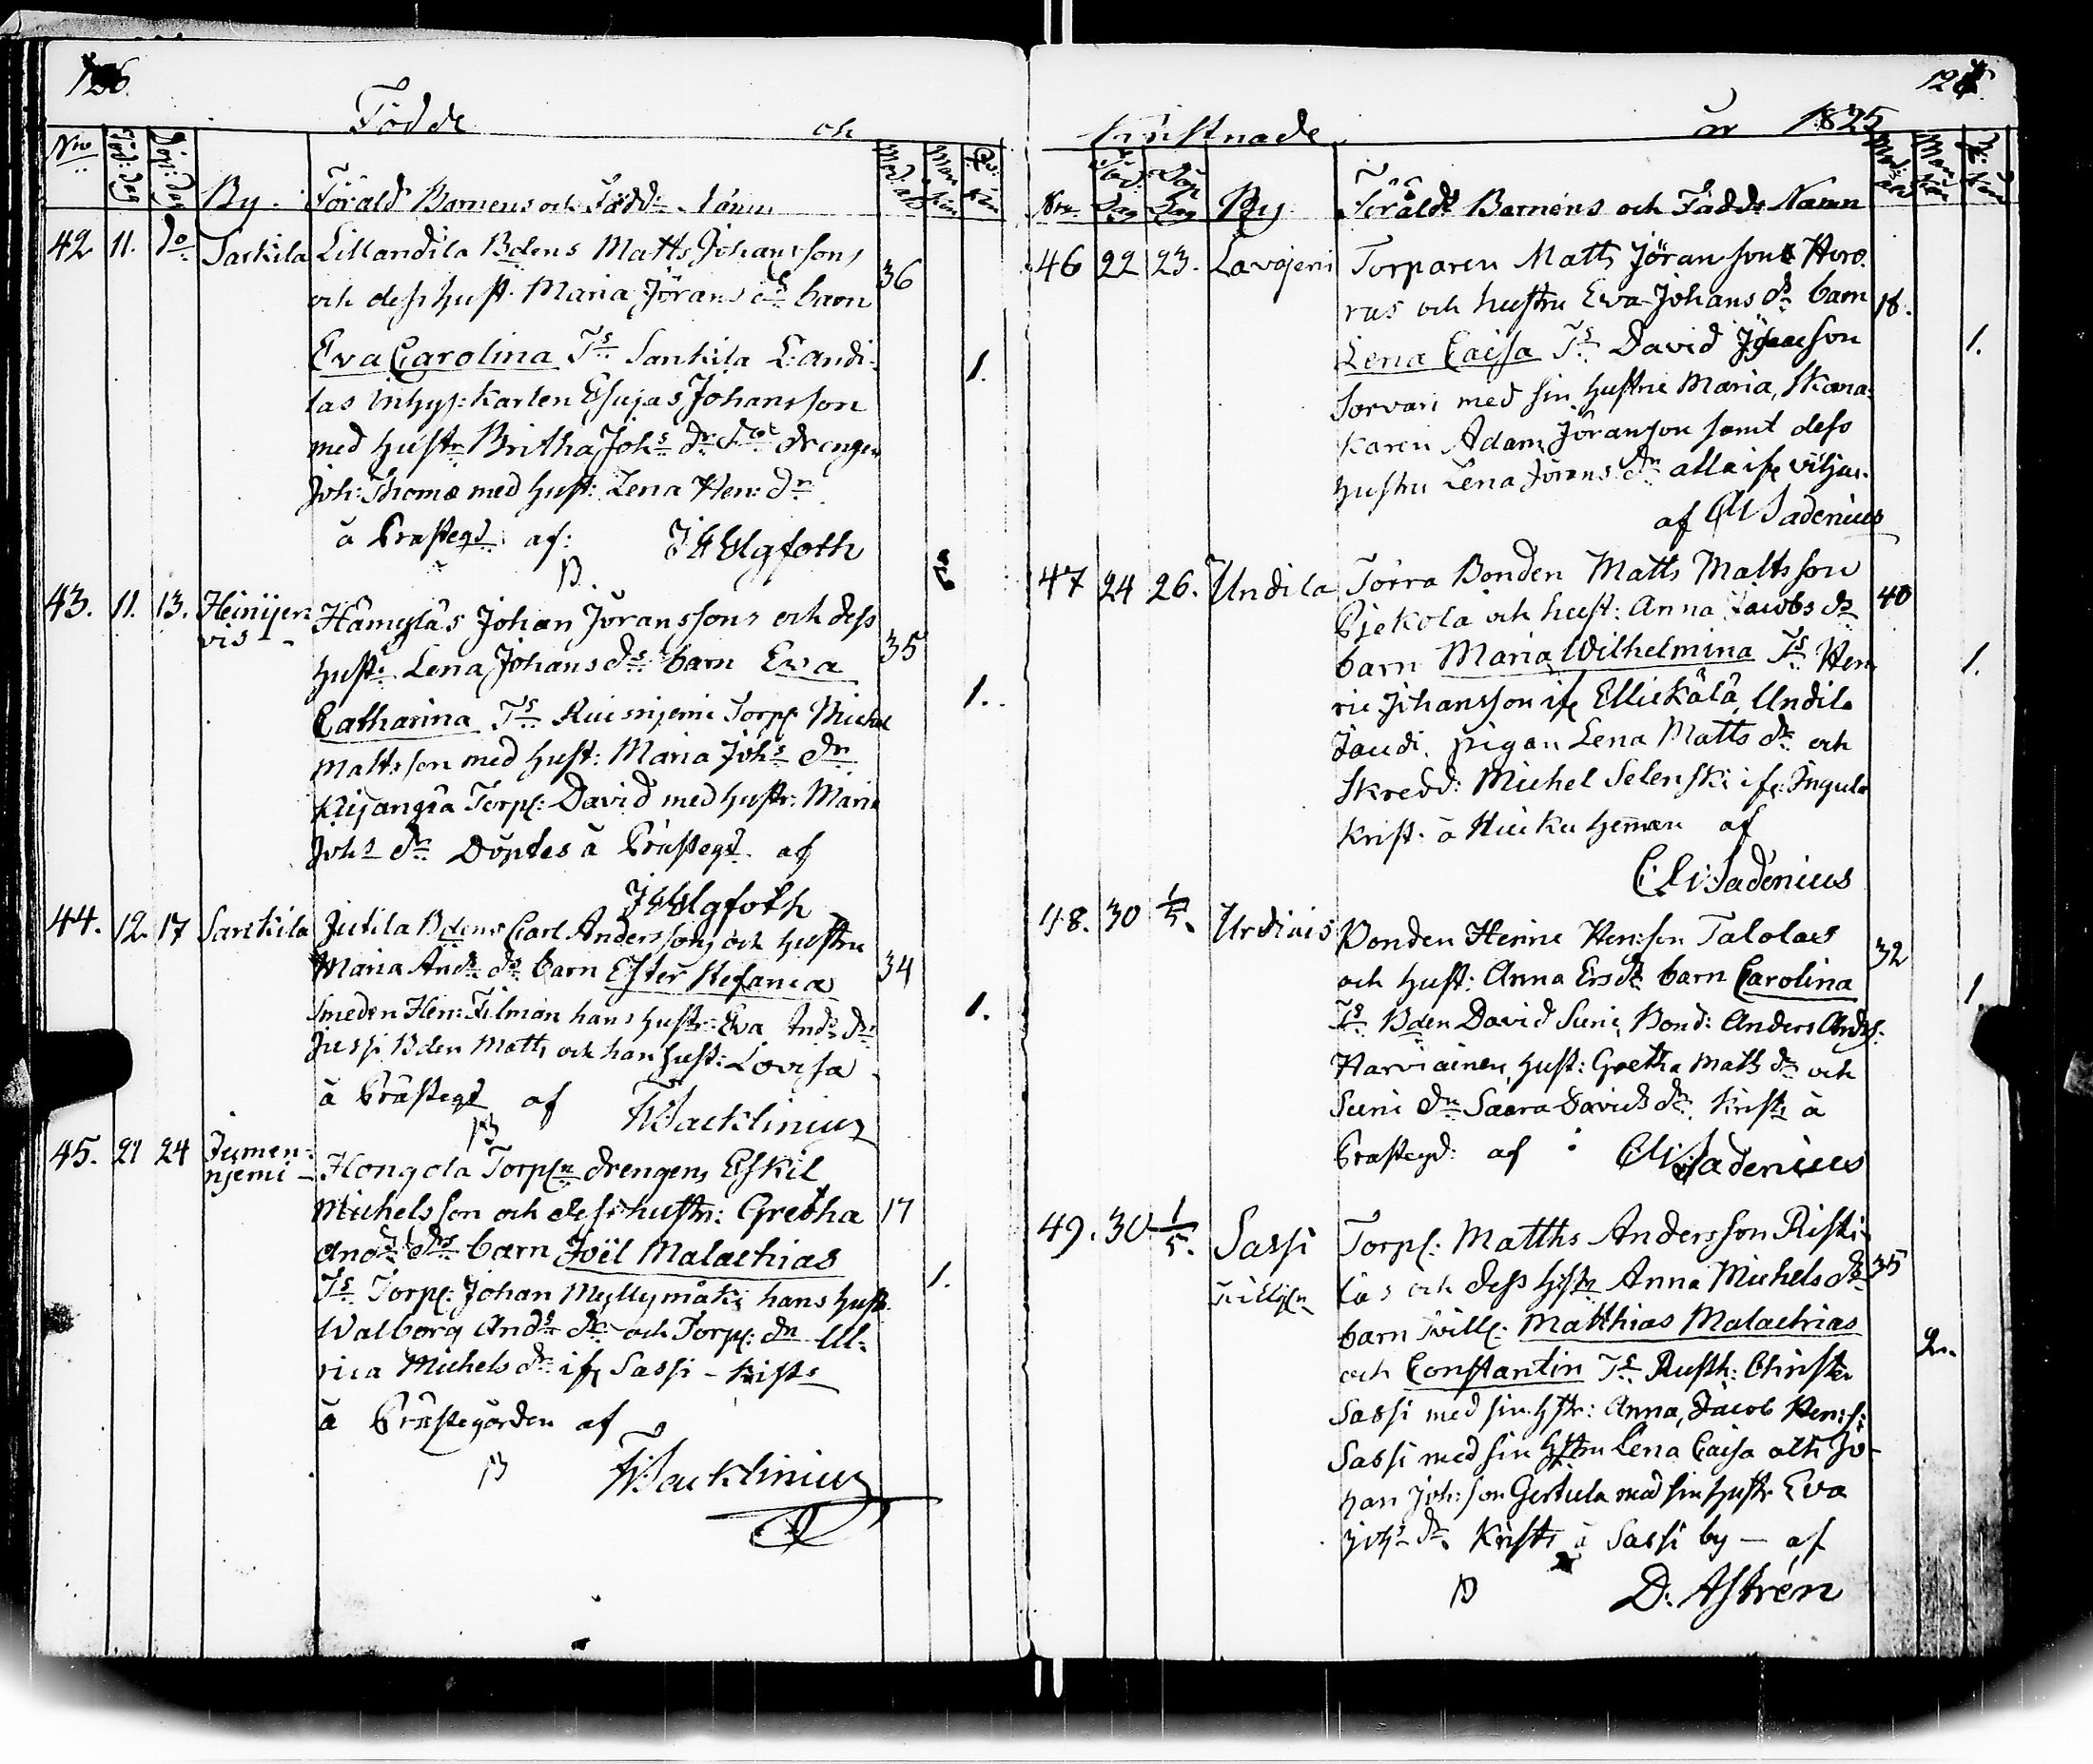 126.
Födde och
Nro Föd: dag Döp: dag By Föräld Barnens och Fadd: Namn Mod: åld Man Kön Qv: Kön
42 11. do Sarkila Lillandila Bdens Matts Johanssons 36
och dess hust. Maria Jörans ds barn
Eva Carolina Ts Sarkila L:andi- 1.
las inhys: karlen Esajas Johansson
med hustr Britha Johs dr drengen
Joh: Thomæ med hust: Lena Hen: dr
å Prästegd af:
B.
43. 11. 13. Heinijer
vis - Hämylås Johan Jöranssons och dess 35
hust: Lena Johans ds barn Eva
Catharina Ts Ruisnjemi Torp: Michel 1.
Mattsson med hust: Maria Johs dr
Torp: David med hustr: Maria
Johs dr Döptes å Prästegd af
44. 12. 17 Sarkila Jutila Bdens Carl Anderssons och hustru 34
Maria Ands ds barn Ester Stefania
Smeden Hen: Filman hans hustr: Eva Ands dr 1.
Jussi Bden Matts och hans hust: Lovisa
å Prästegd af
B Wacklinius
45. 21 24 Jumen-
njemi - Hongola Torp: drengens Eskil
Michelsson och dess hustr: Gretha 17
Ands ds barn Joël Malachias
Ts Torp: Johan Myllymäki hans hust. 1.
Walborg Ands dr och Torp: dr Ul-
rica Michels dr if: Sassi - Krists
å Prästegården af
B Wacklinius
127.
Kristnade år 1825
Nro. Föd: Dag Döp Dag By Föräld: Barnens och Fadd: Namn Mod: åld Man Kön Qv: Kön
46 22 23. Lavajerri Torparen Matts Jöransons
och hustru Eva Johans ds barn 18.
Lena Caisa Ts David 1.
Sorvari med sin hustru Maria, Skoma-
karen Adam Jöranson samt dess
hustru Lena Jörans dr alla if
af Sadenius
47 24 26. Undila Torra Bonden Matts Mattsson 40
och hust: Anna Jacobs dr
barn Maria Wilhelmina Ts Hen- 1.
ric Johansson if Ellickälä, Undila
pigan Lena Matts dr och
Skredd: Michel Selenski if:
Krist. å hemman af
Sadenius
48. 30 1/5. Urdiais Bonden Henric Hen:son Talolas 32
och hust: Anna Ers dr barn Carolina 1.
Ts Bden David Suni, Bond: Anders Anders.
Harviainen, hust: Gretha Matts dr och
Suni dr Saara Davids dr, Krists å
Prästegd: af Sadenius
49. 30 1/5. Sassi Torp: Matths Andersson Risti-
las och dess hustr Anna Michels ds 35
barn tvill: Matthias Malachias 2.
och Constantin Ts Rusth: Christer
Sassi med sin hstr: Anna, Jacob Hen:s:
Sassi med sin hstru Lena Caisa och Jo-
han Joh:son Gertula med sin hustr Eva
Johs dr. Krists å Sassi by — af
B D: Astrén